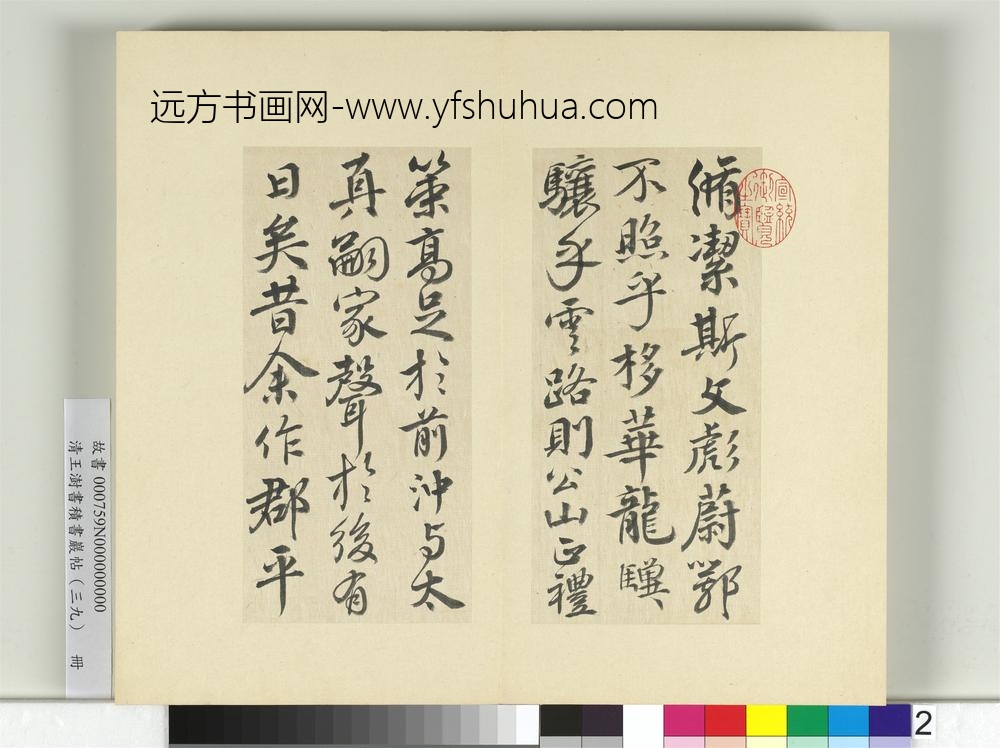 远方书画网-www.yfshuhua.com
脩潔斯文彪蔚鄂
不照乎移華龍驥
驤乎雲路則公山正禮
策高足於前沖与太
真嗣家聲於後有
日矣昔余作郡平
宣統御覽之寶
故書 000759N000000000
清王澍書積書巖帖（三九） 冊
2